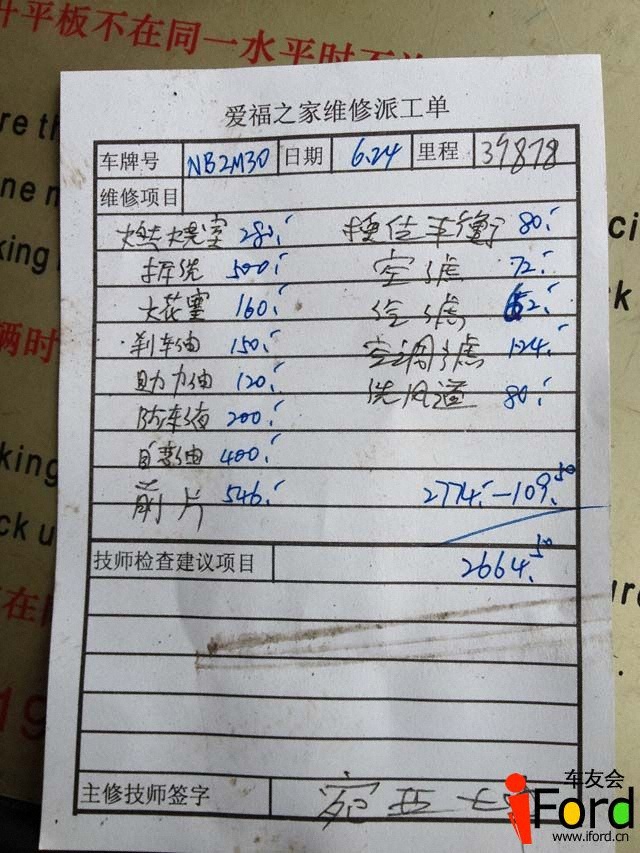 升平板不在同一水平时不
爱福之家维修派工单
车牌号 NB2M30 日期 6.24 里程 37878
维修项目
燃烧室 280. 换位平衡 80.
拆洗 500. 空滤 72.
火花塞 160. 汽滤 62.
刹车油 150. 空调滤 124.
助力油 120. 洗风道 80.
防冻液 200.
自变油 400.
前片 546. 2774.-109.50
技师检查建议项目 2664.50
主修技师签字
车友会
iFord
www.iford.cn